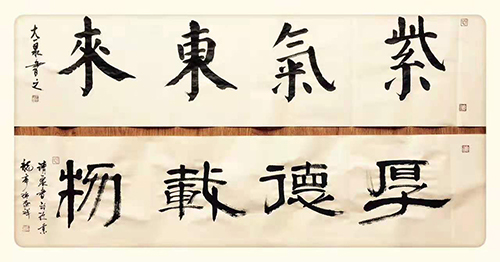 紫氣東來
大泉書之
厚德載物